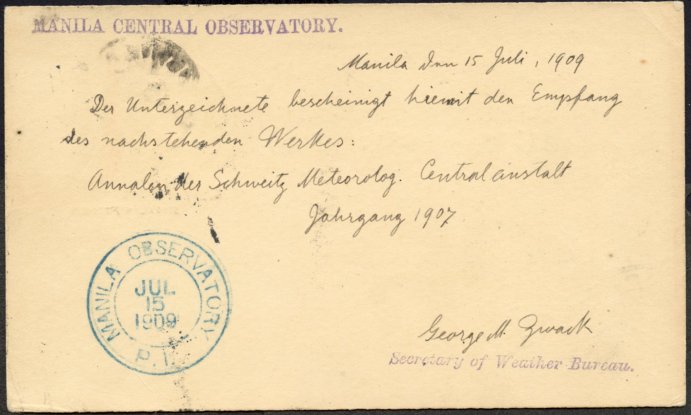 MANILA CENTRAL OBSERVATORY.
Manila den 15 Juli, 1909
Der Unterzeichnete bescheinigt hiemit den Empfang
des nachstehenden Werkes:
Annalen der Schweitz Meteorolog. Centralanstalt
Jahrgang 1907
MANILA OBSERVATORY
JUL
15
1909
P. I.
George M. Zwack
Secretary of Weather Bureau.